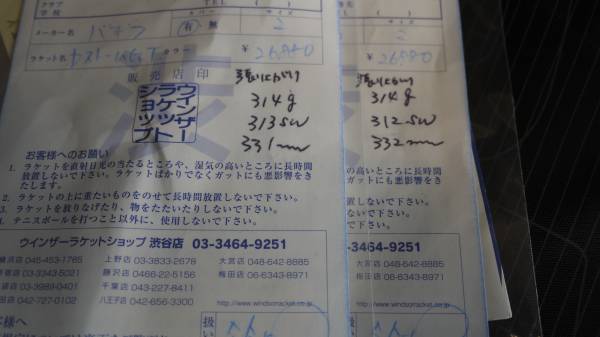 クラブ
学校
TEL (
サイズ
メーカー名
有 無
2
ラケット名
カラー
¥ 26,880
販売店印
ウインザー
ラケット
ショップ
張り上がり
314g
313sw
331mm
お客様へのお願い
1. ラケットを直射日光の当たるところや、湿気の高いところに長時間
放置しないで下さい。ラケットばかりでなくガットにも悪影響をき
たします。
2. ラケットの上に重たいものをのせて長時間放置しないで下さい。
3. ラケットを放りなげたり、物をたたいたりしないで下さい。
4. テニスボールを打つこと以外に、使用しないで下さい。
ウインザーラケットショップ 渋谷店 03-3464-9251
横浜店 045-453-1785 上野店 03-3833-2678 大宮店 048-642-8885
03-3343-5021 藤沢店 0466-22-5156 梅田店 06-6343-8971
03-3989-0401 千葉店 043-227-8411
田店 042-727-0102 八王子店 042-656-3300 http://www.windsorracket.co.jp
様へ
扱い
サイズ
2
¥ 26,880
張り上がり
314g
312sw
332mm
高いところに長時間
ガットにも悪影響をき
置しないで下さい。
ないで下さい。
下さい。
3-3464-9251
大宮店 048-642-8885
梅田店 06-6343-8971
http://www.windsorracket.co.jp
扱い